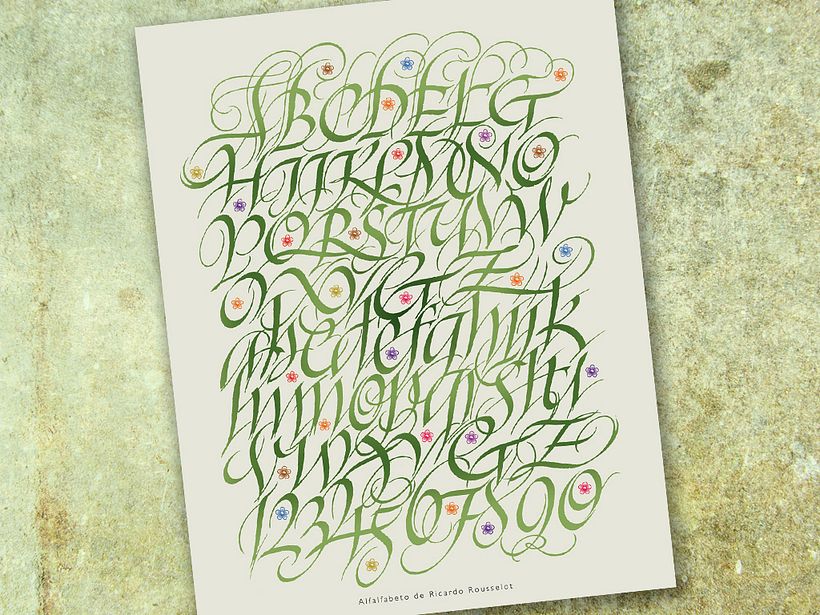 ABCDEFG
HIJKLMNO
PQRSTUVW
&Z
abcdefghijk
lmnopqrstu
&Z
1234567890
Alfalfabeto de Ricardo Rousselot